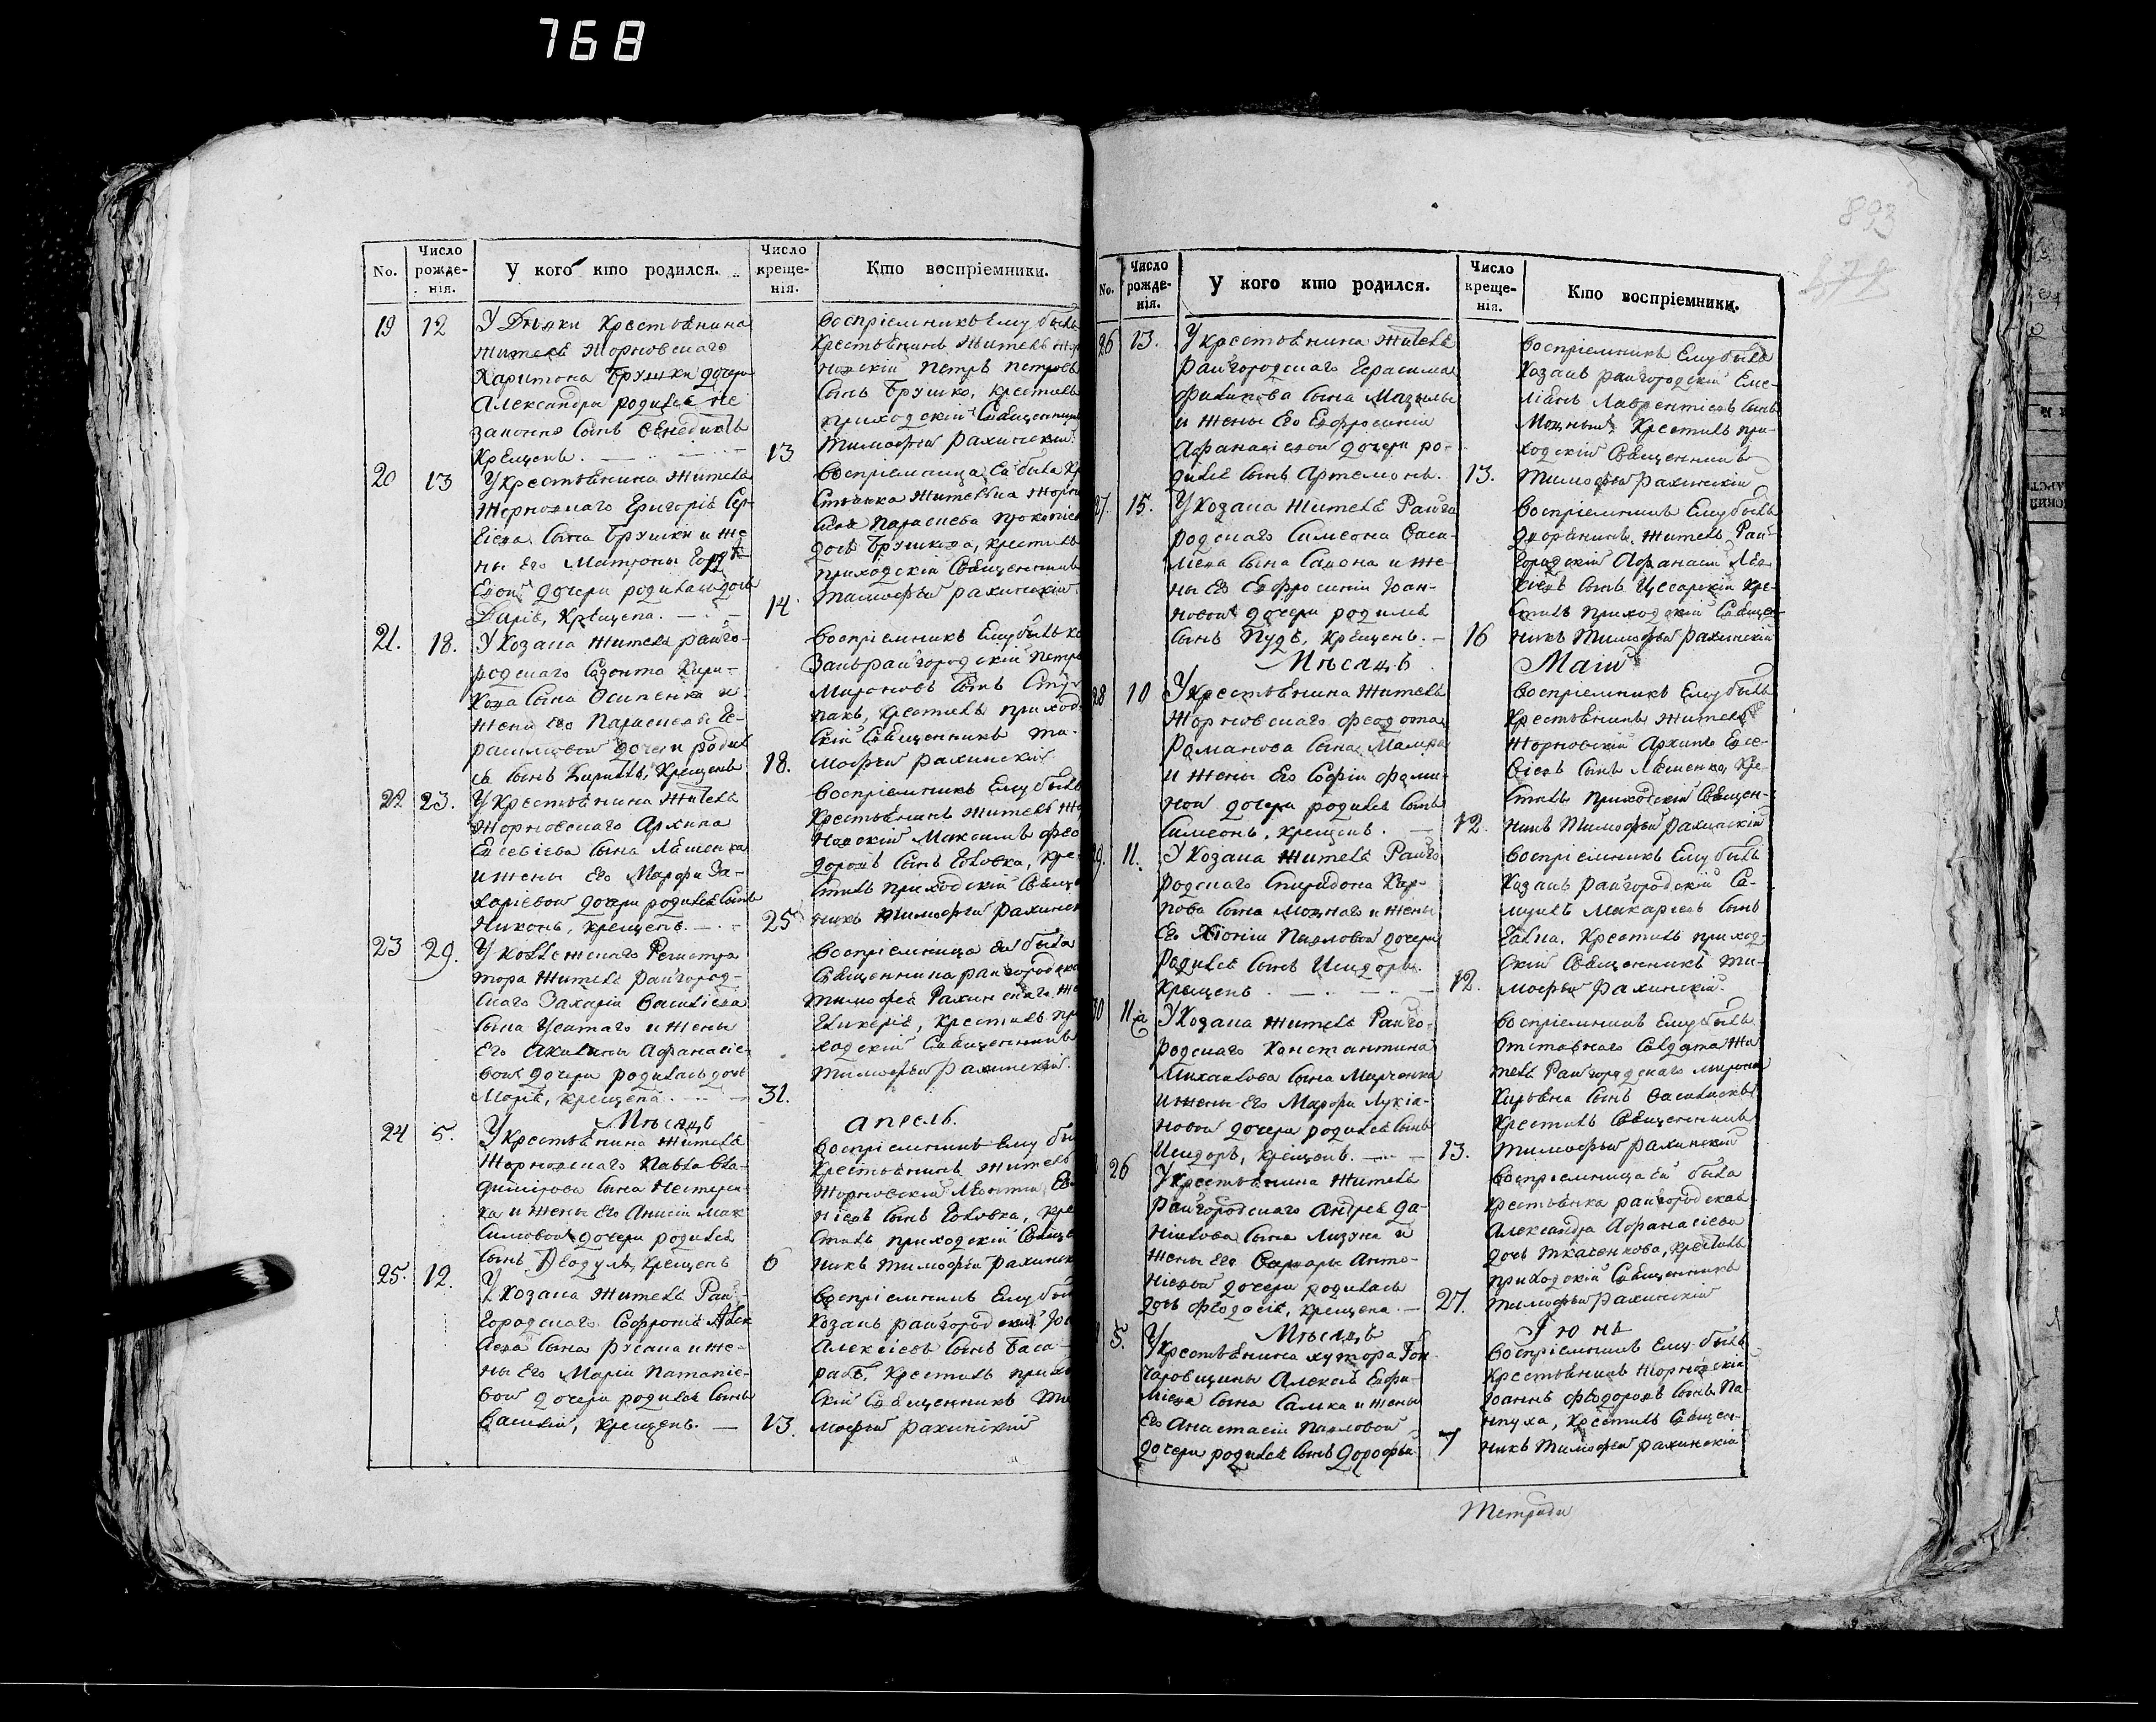 768
893
No.
Число рожде- нія.
У кого кто родился.
Число креще- нія.
Кто воспріемники.
19 12 У Дѣвки Крестьянина
жителя Жорновскаго
Харитона Брушки дочери
Александри родился не
законно сынъ Венедиктъ
Крещенъ. 13
Воспріемникъ Ему былъ
Крестьянинъ житель
Петръ Петровъ
сынъ Брушко, крестилъ
приходскій Священникъ
Тимофѣй Рахинскій.
20 13 У крестьянина жителя
Жорновскаго Григорія Сер-
гіева сына Брушки и же-
ны его Матроны
дочери родилась дочь
Дарія, Крещена. 14
Воспріемница Ей была
Параскева
дочь Брушкова, крестилъ
приходскій Священникъ
Тимофѣй Рахинскій
21. 18. У Козака жителя Райго-
родскаго
сына Осипенка и
жены его Параскевы Ге-
расимовой дочери родил
ся сынъ Кириллъ, Крещенъ 18.
Воспріемникъ Ему былъ ко
закъ райгородскій Петръ
Мироновъ сынъ
крестилъ приход-
скій Священникъ Ти-
мофѣй Рахинскій
22 23. У Крестьянина жителя
Жорновскаго Архипа
Евсевіева сына Ляшенка
и жены его Марфи За-
харіевой дочери родился сынъ
Никонъ, крещенъ. 25
Воспріемникъ Ему былъ
Крестьянинъ житель
Максимъ Фео
доровъ сынъ Головка, кре-
стилъ приходскій Священ
никъ Тимофѣй Рахинск
23 29. У Коллежскаго Регистра
тора жителя Райгород-
скаго Захарія Василіева
сына Усатаго и жены
его Акилины Афанасіе-
вой дочери родилась дочь
Марія, крещена. 31.
Воспріемница ей была
Священника райгородска
Тимофея Рахинскаго же
Гликерія, Крестилъ пр
ходскій Священникъ
Тимофѣй Рахинскій.
Мѣсяцъ Апрель.
24 5. У Крестьянина жителя
Жорновскаго Павла Вла-
димірова сына Нестерен
ка и жены его Анисіи Мак
симовой дочери родился
сынъ Феодулъ, Крещенъ 6
Воспріемникъ Ему бы
Крестьянинъ житель
Жорновскій
сынъ Головка, кре
стилъ приходскій Священ
никъ Тимофѣй Рахинск
25. 12. У Козака жителя Рай-
городскаго Софронія Алек
сѣева сына Русана и же-
ны его Маріи
вой дочери родился сынъ
Василій, крещенъ. 13.
Воспріемникъ Ему был
Козакъ райгородскій
Алексіевъ сынъ Баса-
рабъ, Крестилъ приход
скій Священникъ Ти
мофѣй Рахинскій
No.
Число рожде- нія.
У кого кто родился.
Число креще- нія.
Кто воспріемники.
26 13. У крестьянина жителя
Райгородскаго Герасима
Филипова сына
и жены Его Евфросиніи
Афанасіевой дочери ро-
дился сынъ Артемонъ. 13.
Воспріемникъ Ему былъ
Козакъ райгородскій Еме-
ліянъ Лаврентіевъ сынъ
Мощный Крестилъ при-
ходскій Священникъ
Тимофѣй Рахинскій
27. 15. У Козака жителя Райго
родскаго Симеона Васи-
ліева сына и же-
ны Его Евфросиніи Іоан-
новой дочери родился
сынъ Пудъ, крещенъ. 16
Воспріемникъ Ему былъ
Дворянинъ, житель Рай-
городскій Афанасій
сынъ Цесарскій кре
стилъ приходскій Священ-
никъ Тимофѣй Рахинскій
Мѣсяцъ Маій
28 10 У крестьянина жителя
Жорновскаго Феодота
Романова сына
и жены Его Софіи Фоми-
ной дочери родился сынъ
Симеонъ, крещенъ. 12.
Воспріемникъ Ему былъ
Крестьянинъ житель
Жорновскій Архипъ Евсе-
віевъ сынъ Ляшенко, кре-
стилъ приходскій Священ-
никъ Тимофѣй Рахинскій
29. 11. У Козака жителя Райго
родскаго Спиридона Кар-
пова сына Мощнаго и жены
Его Хіоніи Павловой дочери
родился сынъ Исидоръ.
Крещенъ 12.
Воспріемникъ Ему былъ
Козакъ райгородскій Са-
муилъ Макаріевъ сынъ
Крестилъ приход-
скій Священникъ Ти-
мофѣй Рахинскій
30 11 У Козака жителя Райго-
родскаго Константина
Михайлова сына Марченка
и жены Его Марфи Лукіа-
новой дочери родился сынъ
Исидоръ, крещенъ. 13.
Воспріемникъ Ему былъ
Отставнаго Солдата жи
теля Райгородскаго Мирона
сынъ
Крестилъ Священникъ
Тимофѣй Рахинскій
26 У Крестьянина жителя
Райгородскаго Андрея Да-
ніилова сына и
жены Его Варвары Анто-
ніевой дочери родилась
дочь Феодосія, крещена. 27.
Воспріемница ей была
крестьянка райгородская
Александра Афанасіева
дочь Ткаченкова, крестилъ
приходскій Священникъ
Тимофѣй Рахинскій
Мѣсяцъ Іюнь
5. У Крестьянина хутора Гон
чаровщины Алексія Евфи-
міева сына и жены
Его Анастасіи Павловой
дочери родился сынъ Дорофѣй 7
Воспріемникъ Ему былъ
Крестьянинъ Жорновскій
Іоаннъ Феодоровъ сынъ
крестилъ Священ-
никъ Тимофѣй Рахинскій
Тетради